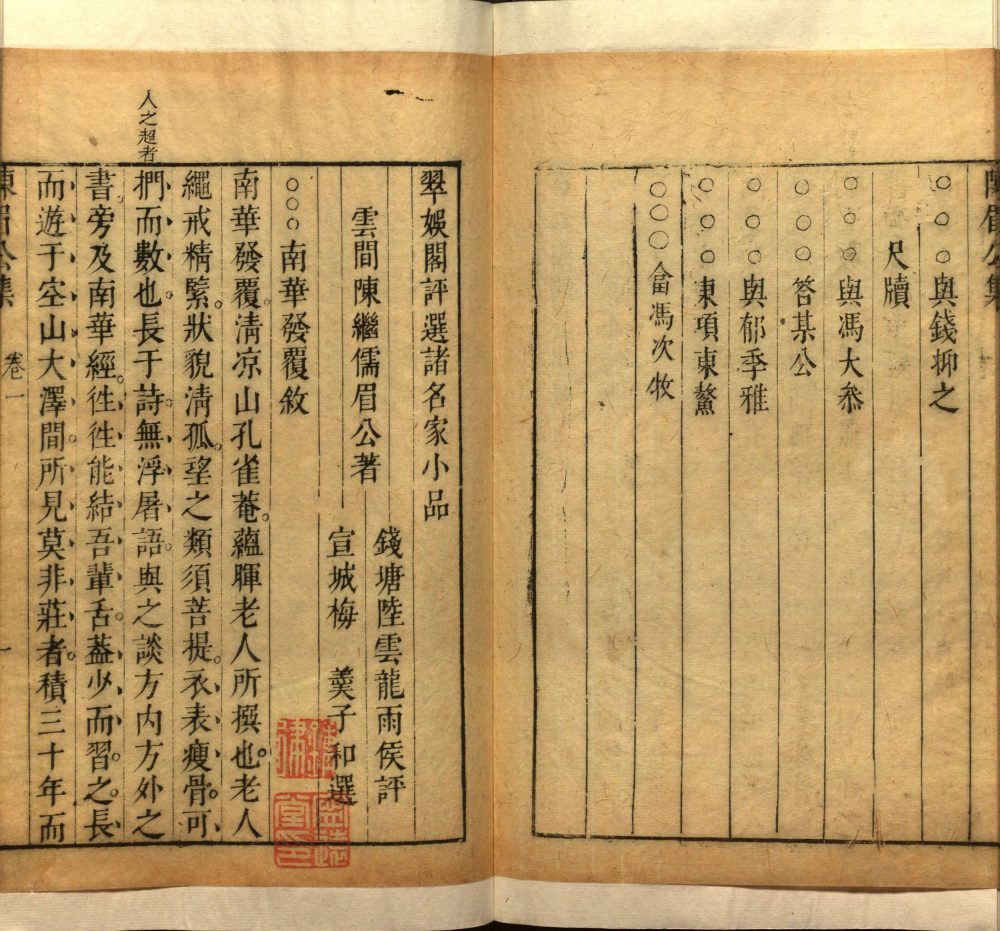 陳眉公集
○○○與錢抑之
尺牘
○○○與馮大叅
○○○答某公
○○○與郁季雅
○○○柬項東鰲
○○○畣馮次牧
翠娛閣評選諸名家小品
雲間陳繼儒眉公著
錢塘陸雲龍雨侯評
宣城梅 羹子和選
○○○南華發覆敘
南華發覆。淸凉山孔雀菴。蘊暉老人所撰也。老人
繩戒精緊。狀貌淸孤。望之類須菩提。衣表瘦骨。可
人之超者
捫而數也。長于詩。無浮屠語。與之談方内方外之
書。旁及南華經。徃徃能結吾輩舌。葢少而習之。長
而遊于空山大澤間。所見莫非莊者。積三十年而
陳眉公集 卷一 一